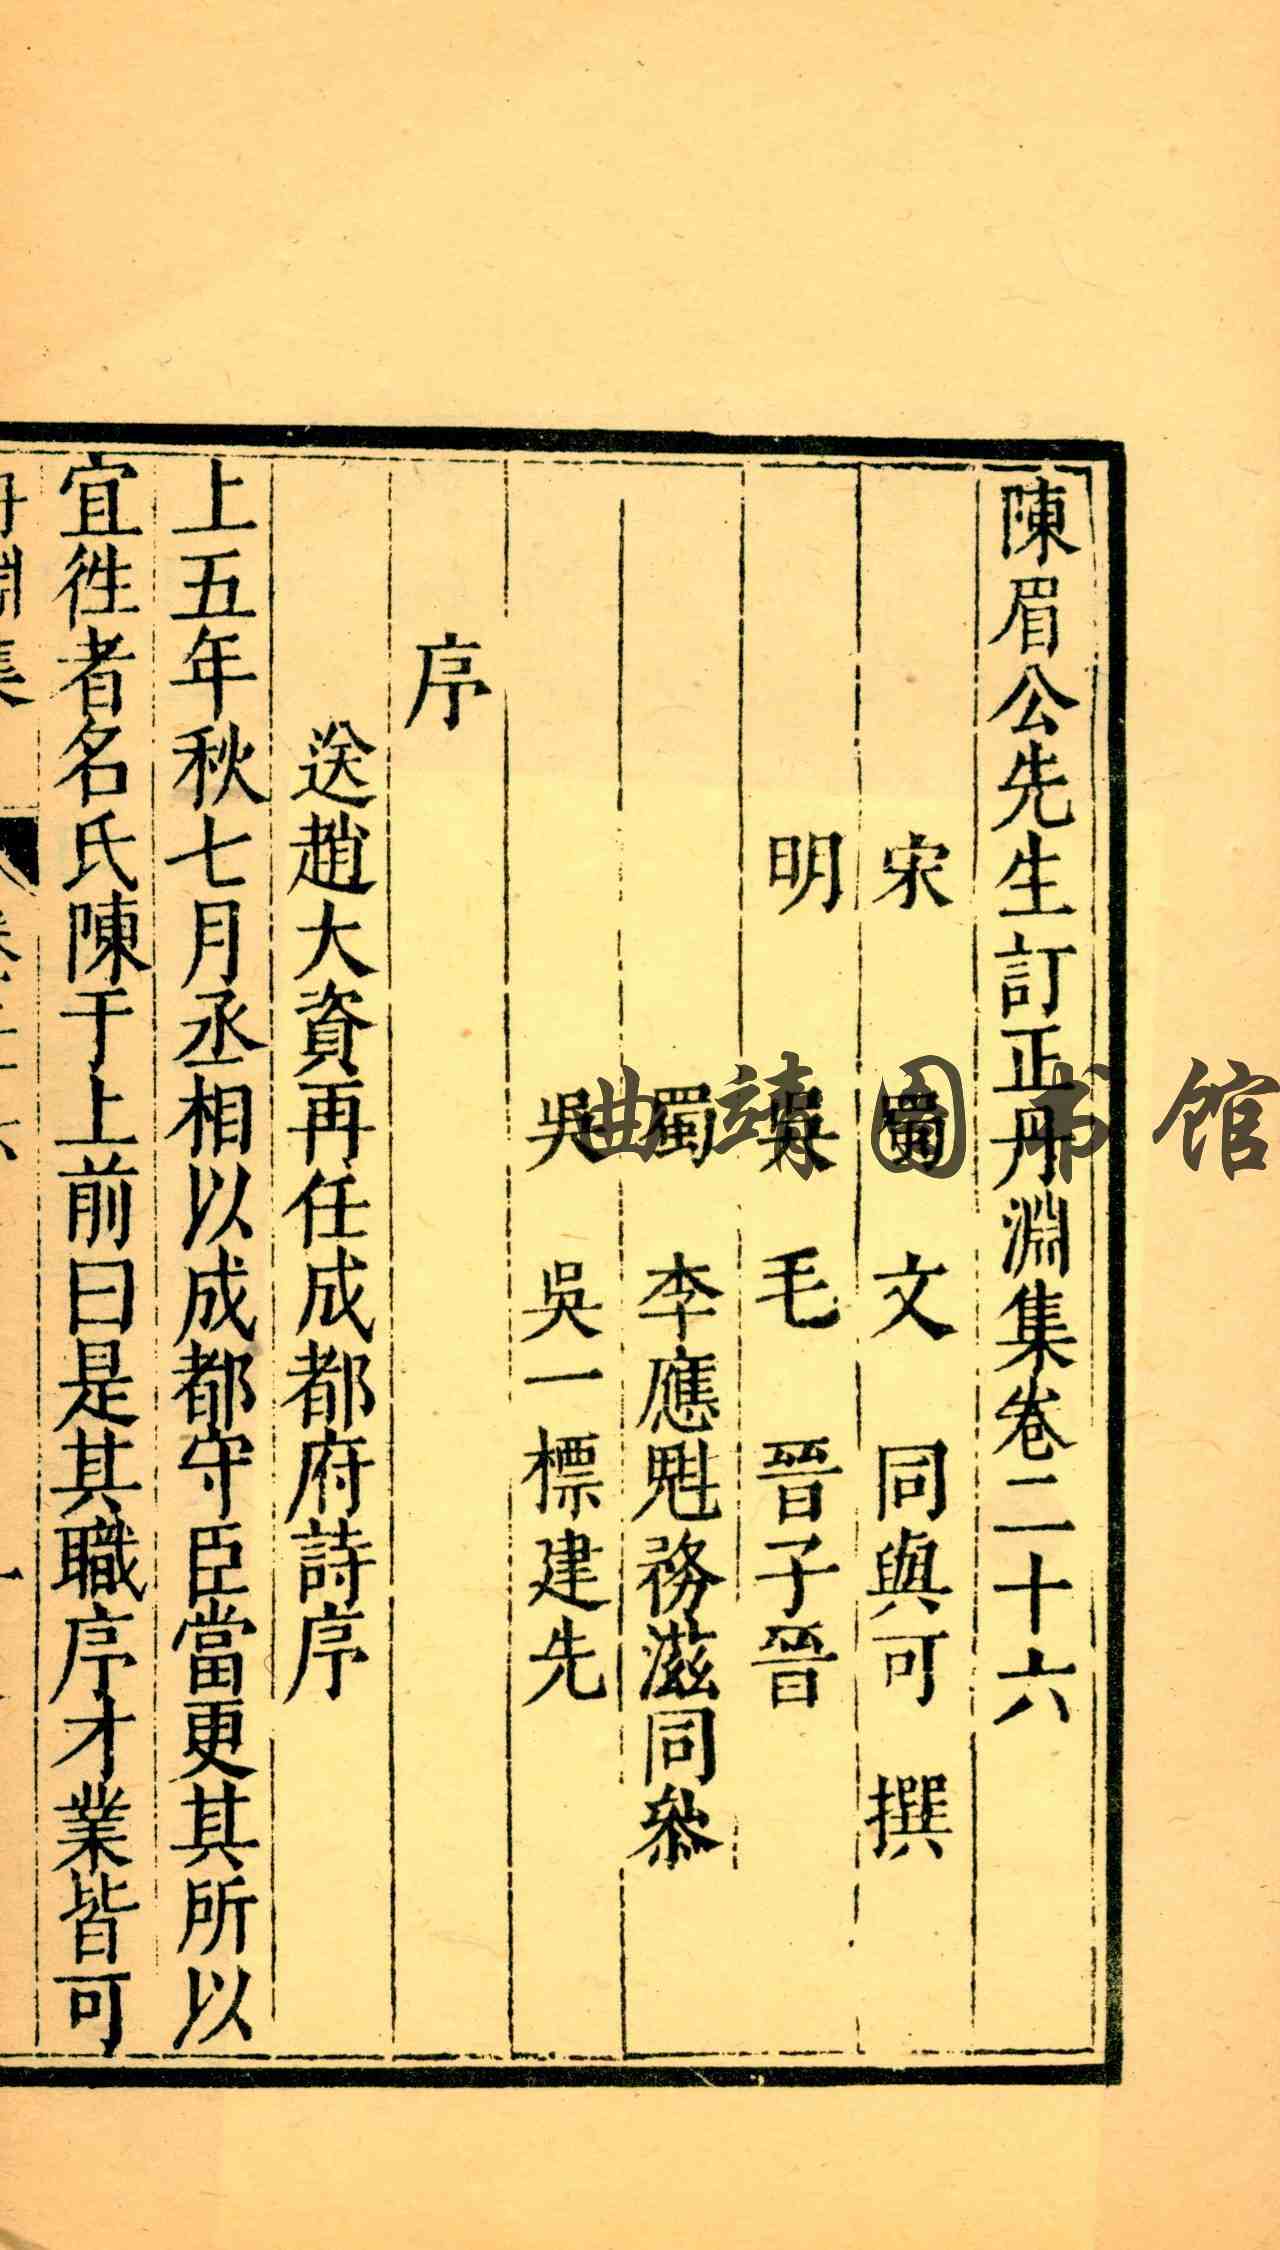 陳眉公先生訂正丹淵集卷二十六
宋 蜀 文 同與可 撰
明 吳 毛 晉子晉
蜀 李應魁務滋同叅
吳 吳一標建先
序
送趙大資再任成都府詩序
上五年秋七月丞相以成都守臣當更其所以
宜徃者名氏陳于上前曰是其職序才業皆可
丹淵集 卷二十六 一
曲靖图书馆